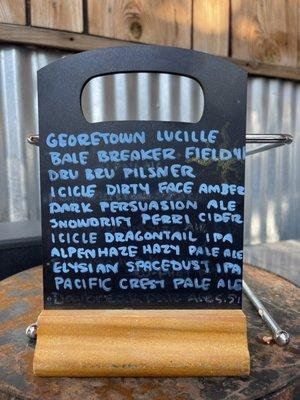 GEORETOWN LUCILLE
BALE BREAKER FIELD41
DRU BRU PILSNER
ICICLE DIRTY FACE AMBER
DARK PERSUASION ALE
SNOWDRIFT PERRI CIDER
ICICLE DRAGONTAIL IPA
ALPENHAZE HAZY PALE ALE
ELYSIAN SPACEDUST IPA
PACIFIC CREST PALE ALE